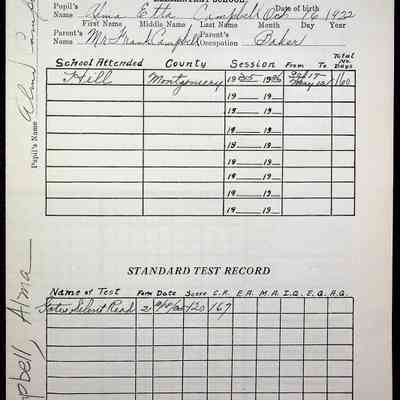 ELEMENTARY SCHOOL
Pupil's Name Alma Etta Campbell Oct 16 1922 Date of birth
First Name Middle Name Last Name Month Day Year
Parent's Name Mr Frank Campbell Parent's Occupation Baker
School Attended County Session From To Total No. Days
Hill Montgomery 19 19 160
19 19
19 19
19 19
19 19
19 19
19 19
19 19
Pupil's Name Alma
STANDARD TEST RECORD
Name of Test Form Date Score C.A. E.A. M.A. I.Q. E.Q. A.Q.
Gates Silent Read 2 120 167
Campbell, Alma